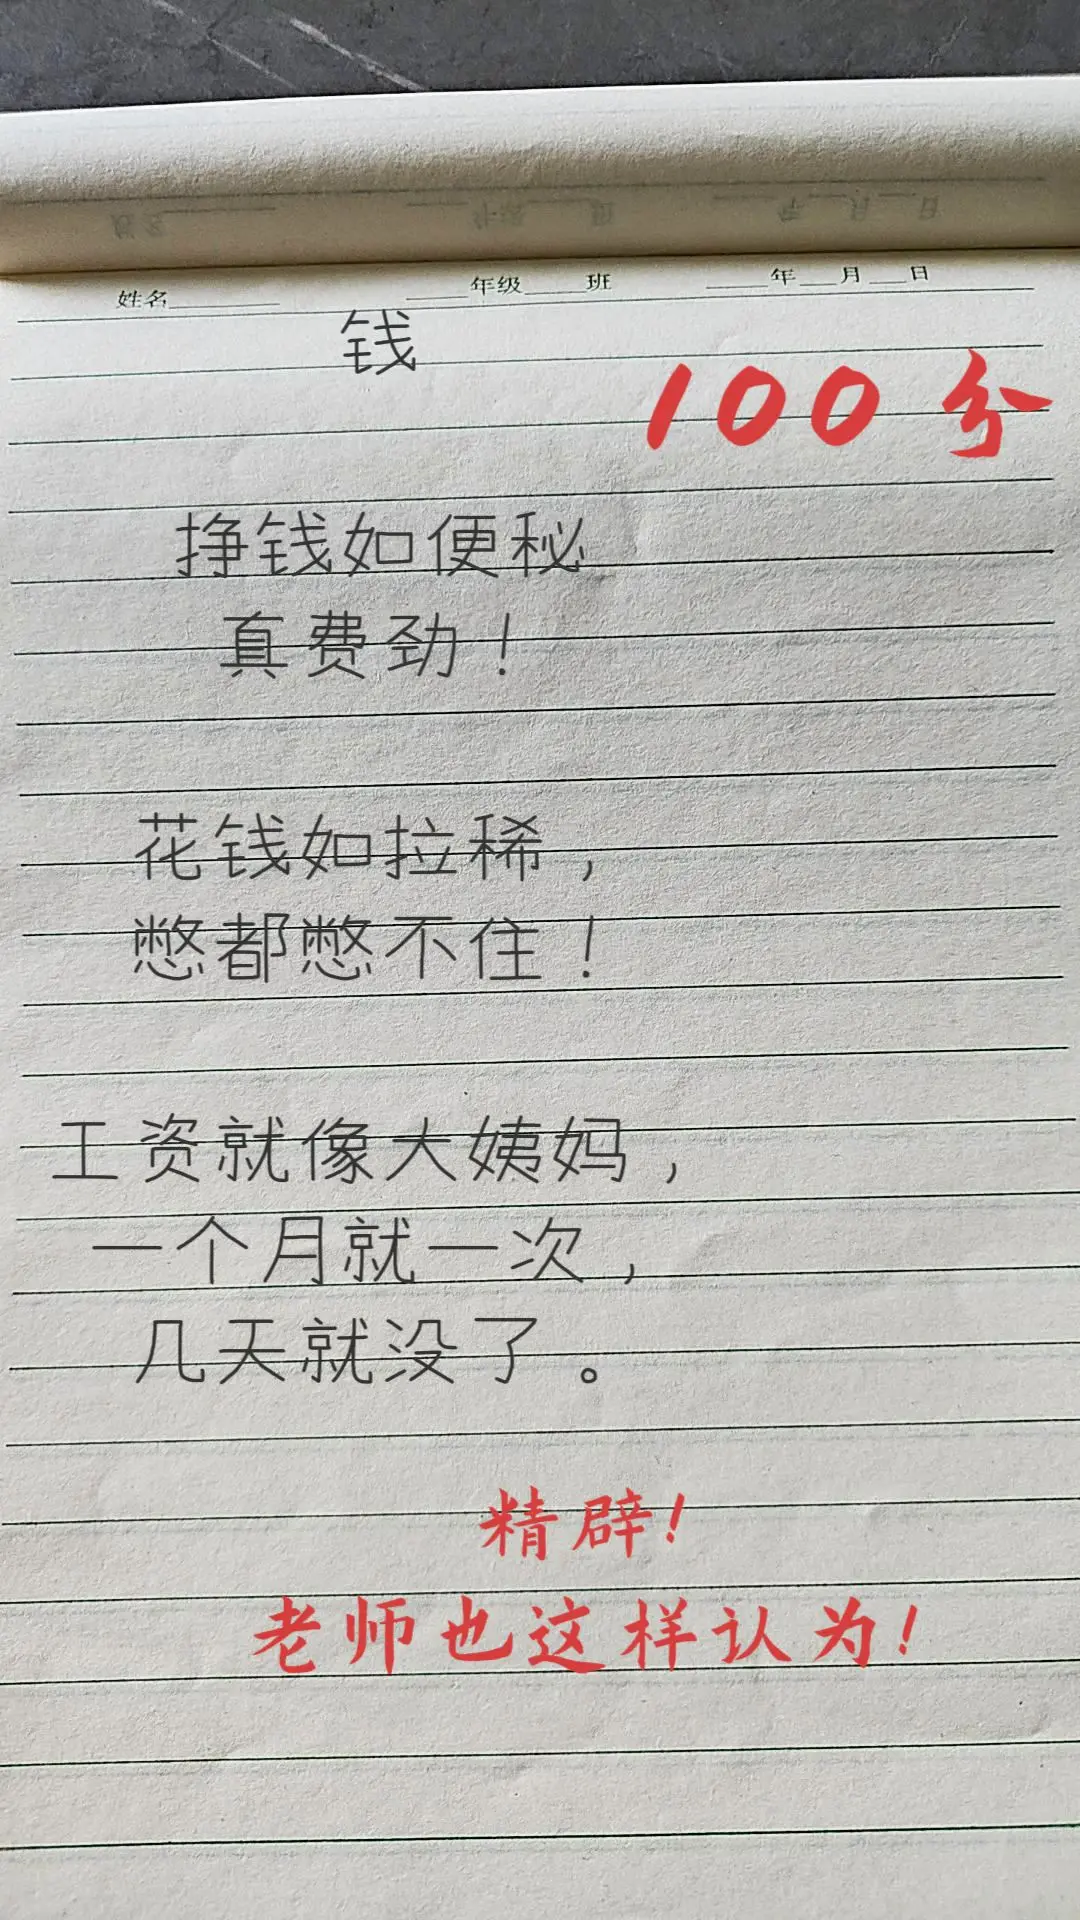 姓名______ ____年级____班 ____年__月__日
钱
100分
挣钱如便秘
真费劲！
花钱如拉稀，
憋都憋不住！
工资就像大姨妈，
一个月就一次，
几天就没了。
精辟！
老师也这样认为！